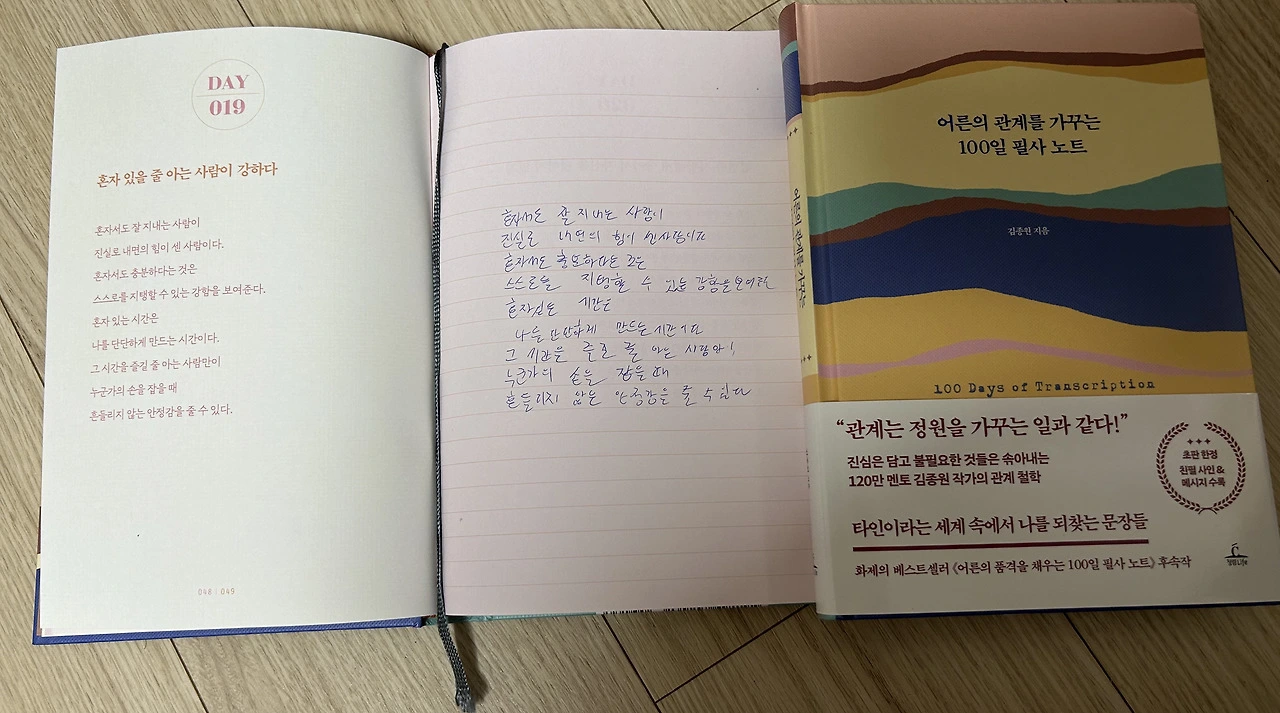 DAY
019
혼자 있을 줄 아는 사람이 강하다
혼자서도 잘 지내는 사람이
진실로 내면의 힘이 센 사람이다.
혼자서도 충분하다는 것은
스스로를 지탱할 수 있는 강함을 보여준다.
혼자 있는 시간은
나를 단단하게 만드는 시간이다.
그 시간을 즐길 줄 아는 사람만이
누군가의 손을 잡을 때
흔들리지 않는 안정감을 줄 수 있다.
048 | 049
혼자서도 잘 지내는 사람이
진실로 내면의 힘이 센 사람이다
혼자서도 충분하다는 것은
스스로를 지탱할 수 있는 강함을
혼자있는 시간은
나를 단단하게 만드는 시간이다
그 시간을 즐길 줄 아는 사람만이
누군가의 손을 잡을 때
흔들리지 않는 안정감을 줄 수 있다
어른의 관계를 가꾸는
어른의 관계를 가꾸는
100일 필사 노트
김종원 지음
100 Days of Transcription
“관계는 정원을 가꾸는 일과 같다!”
진심은 담고 불필요한 것들은 솎아내는
120만 멘토 김종원 작가의 관계 철학
타인이라는 세계 속에서 나를 되찾는 문장들
화제의 베스트셀러 《어른의 품격을 채우는 100일 필사 노트》 후속작
초판 한정
친필 사인 &
메시지 수록
청림Life